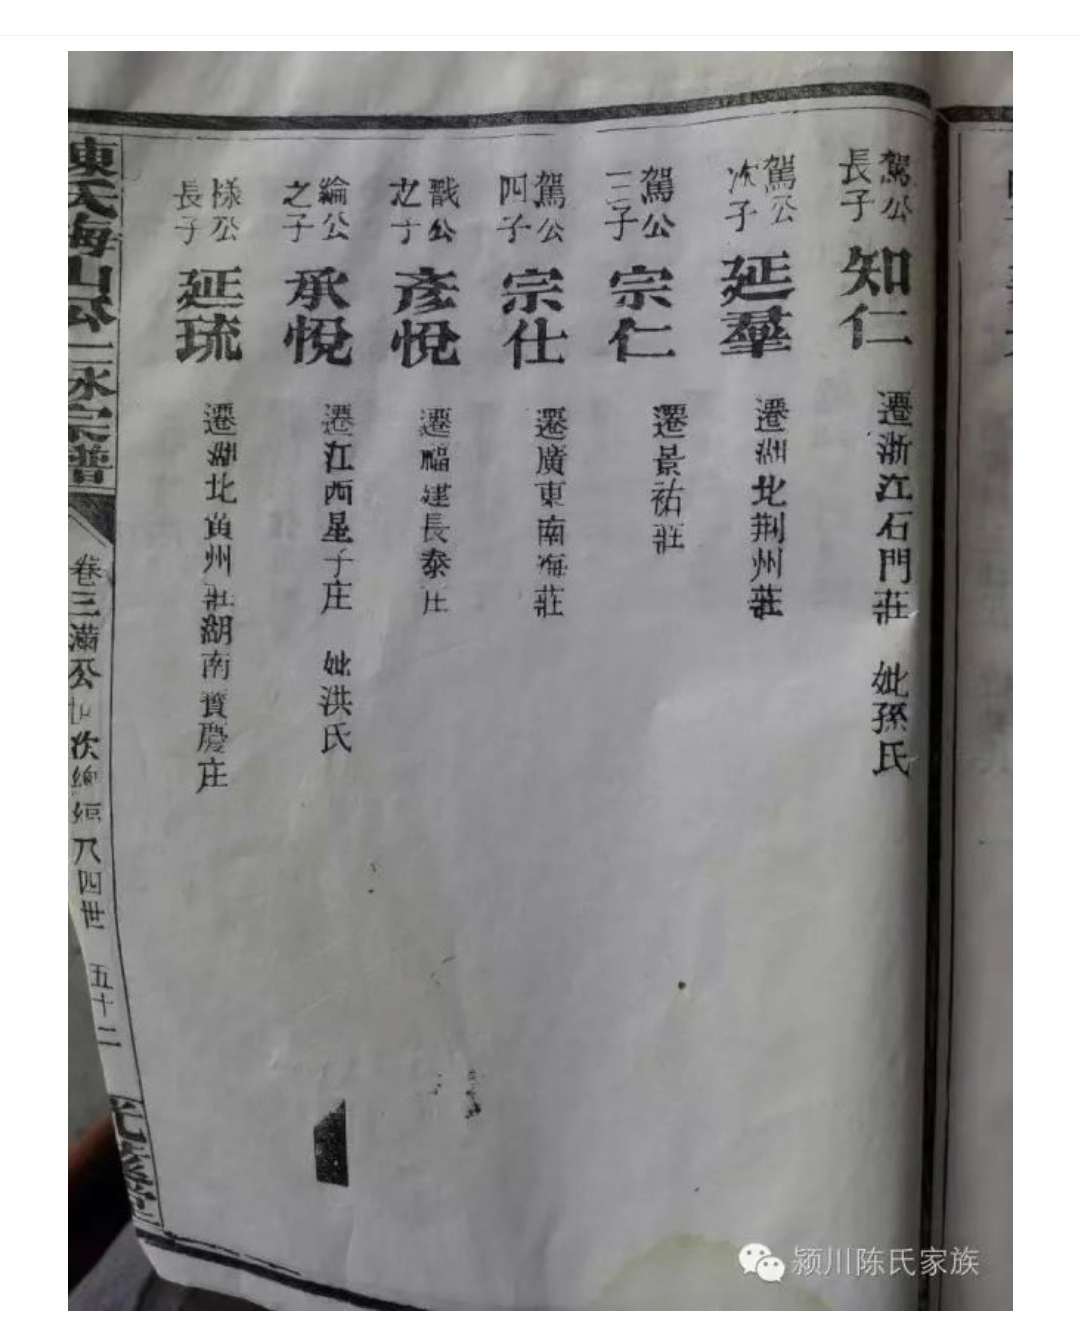 駕公長子 知仁 遷浙江石門莊 妣孫氏
駕公次子 延羣 遷湖北荆州莊
駕公三子 宗仁 遷景祐莊
駕公四子 宗仕 遷廣東南海莊
戬公之子 彥悅 遷福建長泰庄
綸公之子 承悅 遷江西星子庄 妣洪氏
樣公長子 延琉 遷湖北黄州莊湖南寳慶庄
陳氏海山公一脉宗譜
卷三滿公 次 八四世 五十二
颍川陈氏家族